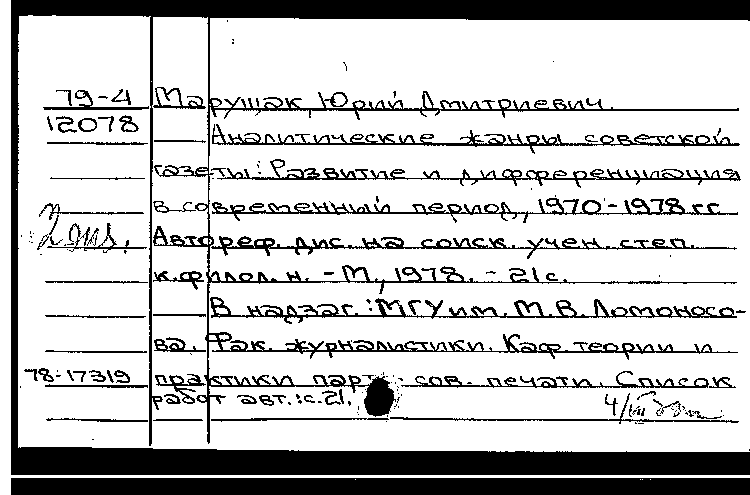 79-4 Марущак, Юрий Дмитриевич.
12078 Аналитические жанры советской
газеты: Развитие и дифференциация
в современный период, 1970-1978 гг
2 экз. Автореф. дис. на соиск. учен. степ.
к. филол. н. - М., 1978. - 21 с.
В надзаг.: МГУ им. М.В. Ломоносо-
ва. Фак. журналистики. Каф. теории и
78-17319 практики парт. сов. печати. Список
работ авт.: с. 21. 4/III